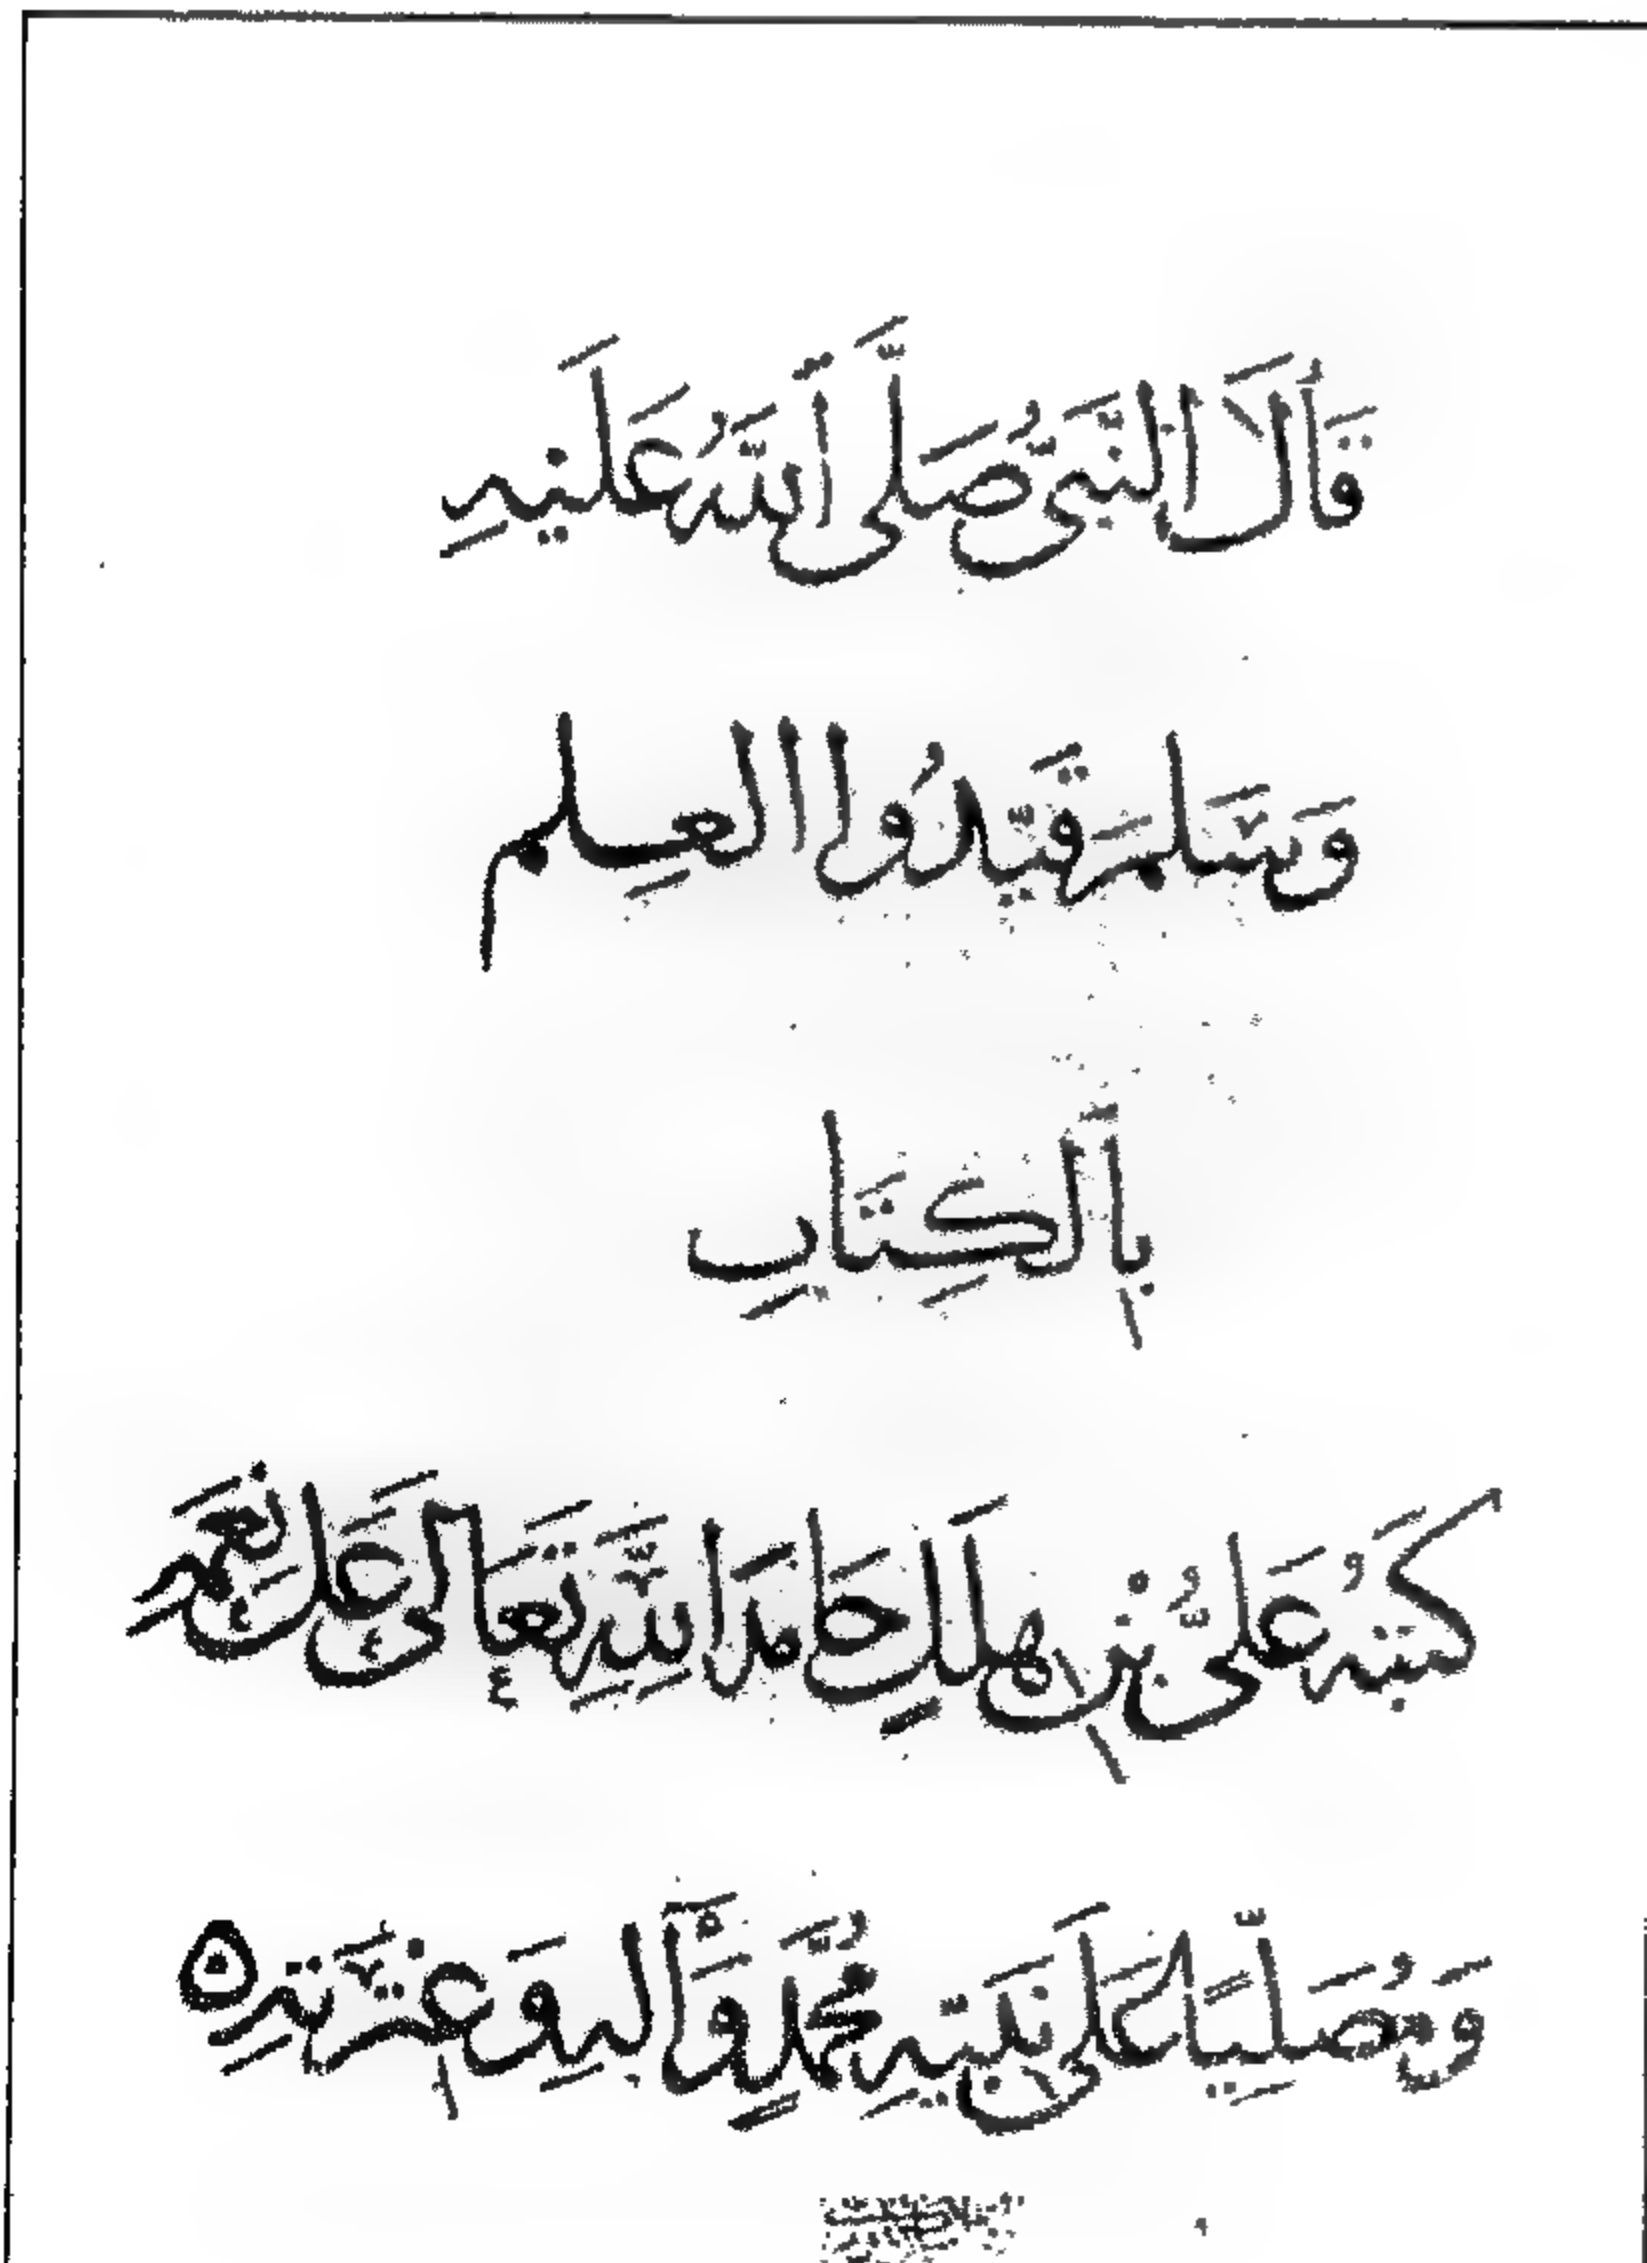 قَالَ النَّبِيُّ صَلَّى اللَّهُ عَلَيْهِ
وَسَلَّمَ قَيِّدُوا الْعِلْم
بِالْكِتَابِ
كَتَبَهُ عَلِيُّ بْنُ هِلَالٍ حَامِدًا لِلَّهِ تَعَالَى عَلَى نِعَمِهِ
وَمُصَلِّيًا عَلَى نَبِيِّهِ مُحَمَّدٍ وَآلِهِ وَعِتْرَتِهِ